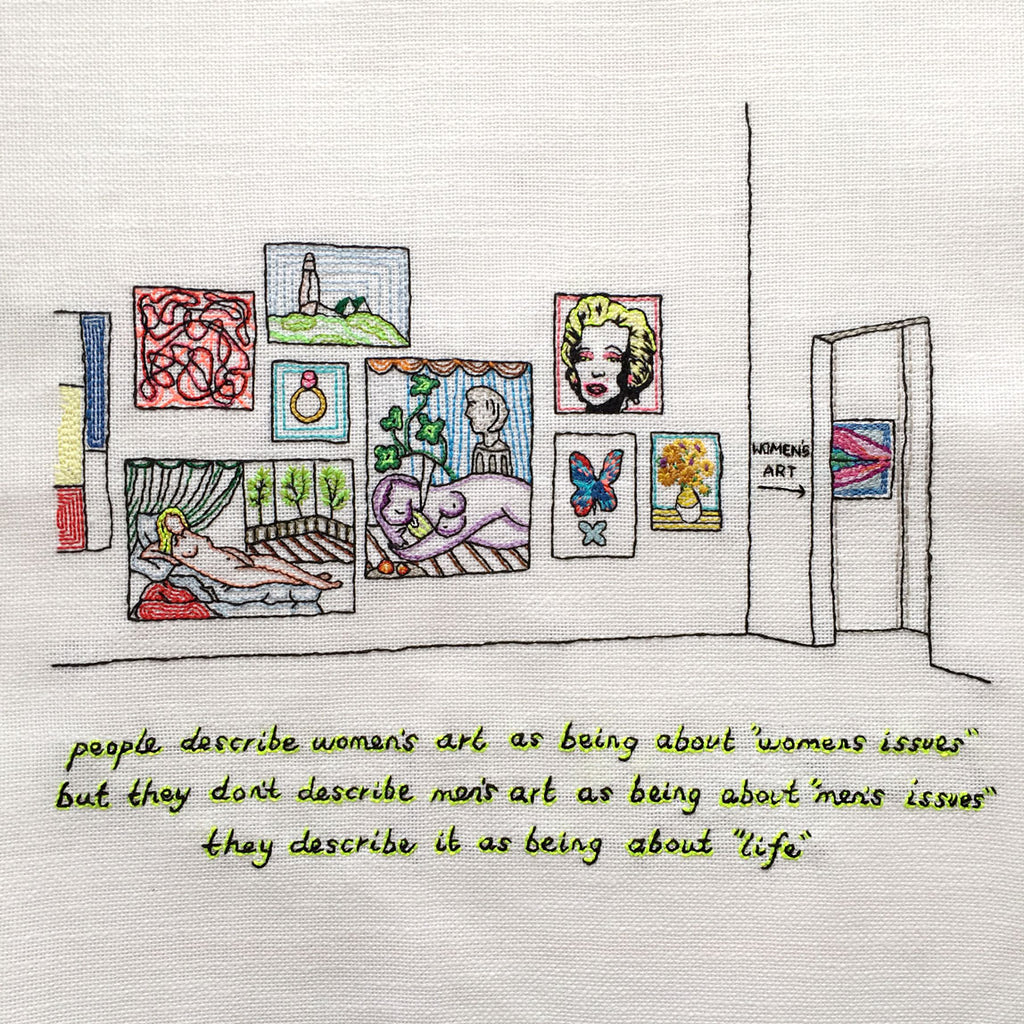 WOMEN'S
ART
people describe women's art as being about "womens issues"
but they don't describe men's art as being about "men's issues"
they describe it as being about "life"